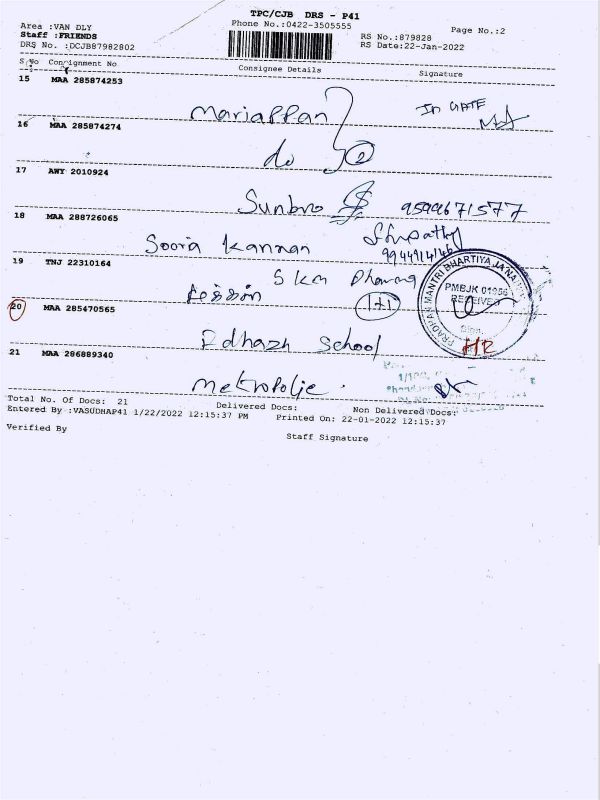 TPC/CJB DRS - P41
Area :VAN DLY Phone No.:0422-3505555 Page No.:2
Staff :FRIENDS RS No.:879828
DRS No. :DCJB87982802 RS Date:22-Jan-2022
S.No Consignment No Consignee Details Signature
15 MAA 285874253
Mariappan IN GATE
16 MAA 285874274
do 2
17 AWY 2010924
Sunbro 9599671577
18 MAA 288726065
Sooria Kannan
19 TNJ 22310164
SKM Pharma
1+1
PRADHAN MANTRI BHARTIYA JANA
PMBJK 01956
RECEIVED
Sign.
20 MAA 285470565
HR
Edhazh School
21 MAA 286889340
Metropolie.
Total No. Of Docs: 21 Delivered Docs: Non Delivered Docs:
Entered By :VASUDHAP41 1/22/2022 12:15:37 PM Printed On: 22-01-2022 12:15:37
Verified By
Staff Signature